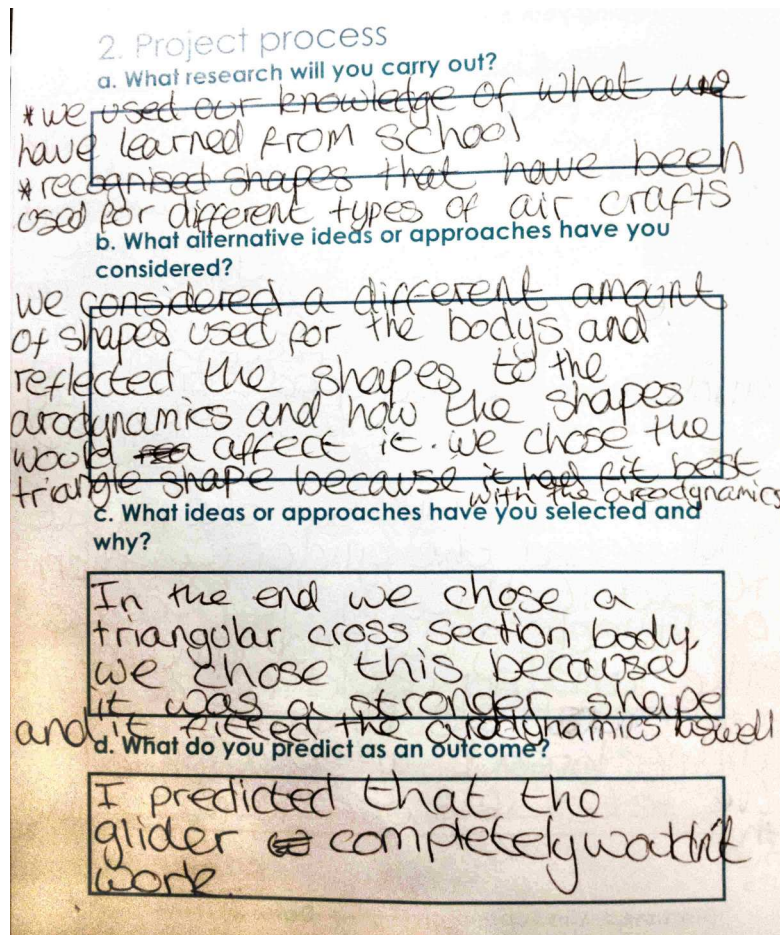 2. Project process
a. What research will you carry out?
* we used our knowledge of what we
have learned from school
* recognised shapes that have been
used for different types of air crafts
b. What alternative ideas or approaches have you
considered?
we considered a different amount
of shapes used for the bodys and
reflected the shapes to the
arodynamics and how the shapes
would affect it. we chose the
triangle shape because it had fit best
with the areodynamics
c. What ideas or approaches have you selected and
why?
In the end we chose a
triangular cross section body,
we chose this because
it was a stronger shape
and it fitted the arodynamics aswell
d. What do you predict as an outcome?
I predicted that the
glider completely wouldn't
work.